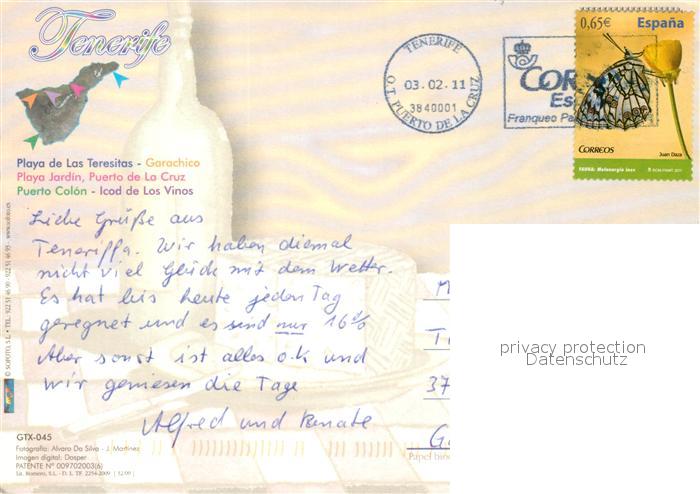 Tenerife
TENERIFE
03.02.11
3840001
O.T. PUERTO DE LA CRUZ
CORR
Es
Franqueo Pa
0,65€ España
CORREOS
Juan Daza
FAUNA: Melanargia ines
Playa de Las Teresitas - Garachico
Playa Jardín, Puerto de La Cruz
Puerto Colón - Icod de Los Vinos
Liebe Grüße aus
Teneriffa. Wir haben diemal
nicht viel Glück mit dem Wetter.
Es hat bis heute jeden Tag
geregnet und es sind nur 16%
Aber sonst ist alles o.k und
wir geniesen die Tage
Alfred und Renate
M
T
37
G
privacy protection
Datenschutz
© SOFOTO, S.L. • TEL.: 922 51 46 90 - 922 51 46 95 - www.sofoto.es
GTX-045
Fotografía: Alvaro Da Silva - J. Martínez
Imagen digital: Dosper
PATENTE Nº 009702003(6)
Lit. Romero, S.L. - D. L. TF. 2254-2009 [12/09]
Papel